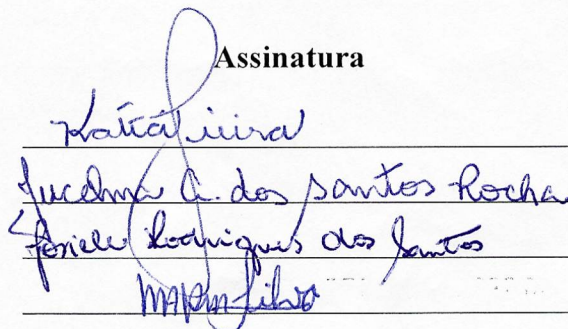 Assinatura
Katia
Jucelma A. dos Santos Rocha
Josiele Rodrigues dos Santos
Silva